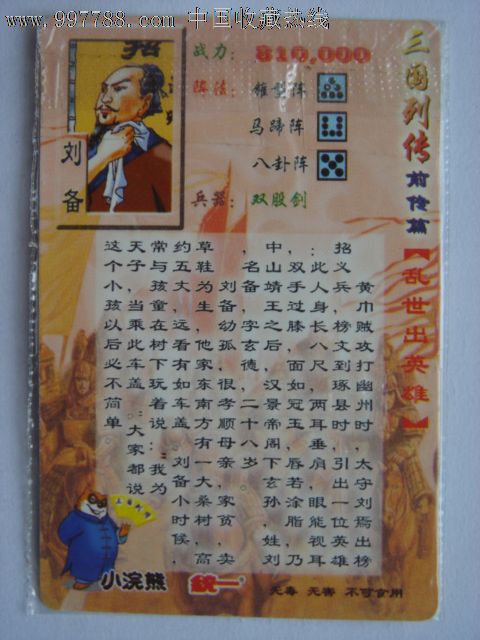 www.997788.com 中国收藏热线
招
刘备
战力：
阵法：锥型阵
马蹄阵
八卦阵
兵器：双股剑
三国列传
前传篇
【乱世出英雄】
黄巾贼攻打幽州时，太守刘焉出榜
招义兵，榜文到琢县时，引出一位英雄
：此人身长八尺，两耳垂肩，眼能视耳
，双手过膝，面如冠玉，唇若涂脂，乃
中山靖王之后，汉景帝阁下玄孙，姓刘
，名备，字玄德，二十八岁。
刘备幼孤，很孝顺母亲，家贫，卖
草鞋为生。他家东南方有一大桑村，高
约五丈，远看有如车盖。刘备小时候，
常与孩童在树下玩着说：我为
天子，当乘此车盖。大家都说
这个小孩以后必不简单。
小浣熊
統一
无毒 无害 不可食用